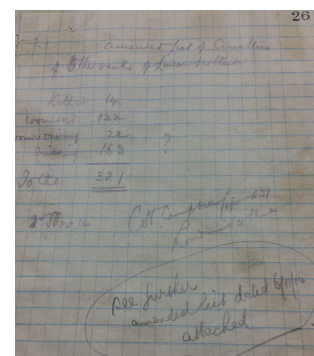 26
amended list of Casualties
of Other ranks of London Scottish
Killed 14
wounded 122
22
Missing 163 ?
Total 321
2nd Nov. 14
London
see further
amended list dated 6/11/14
attached